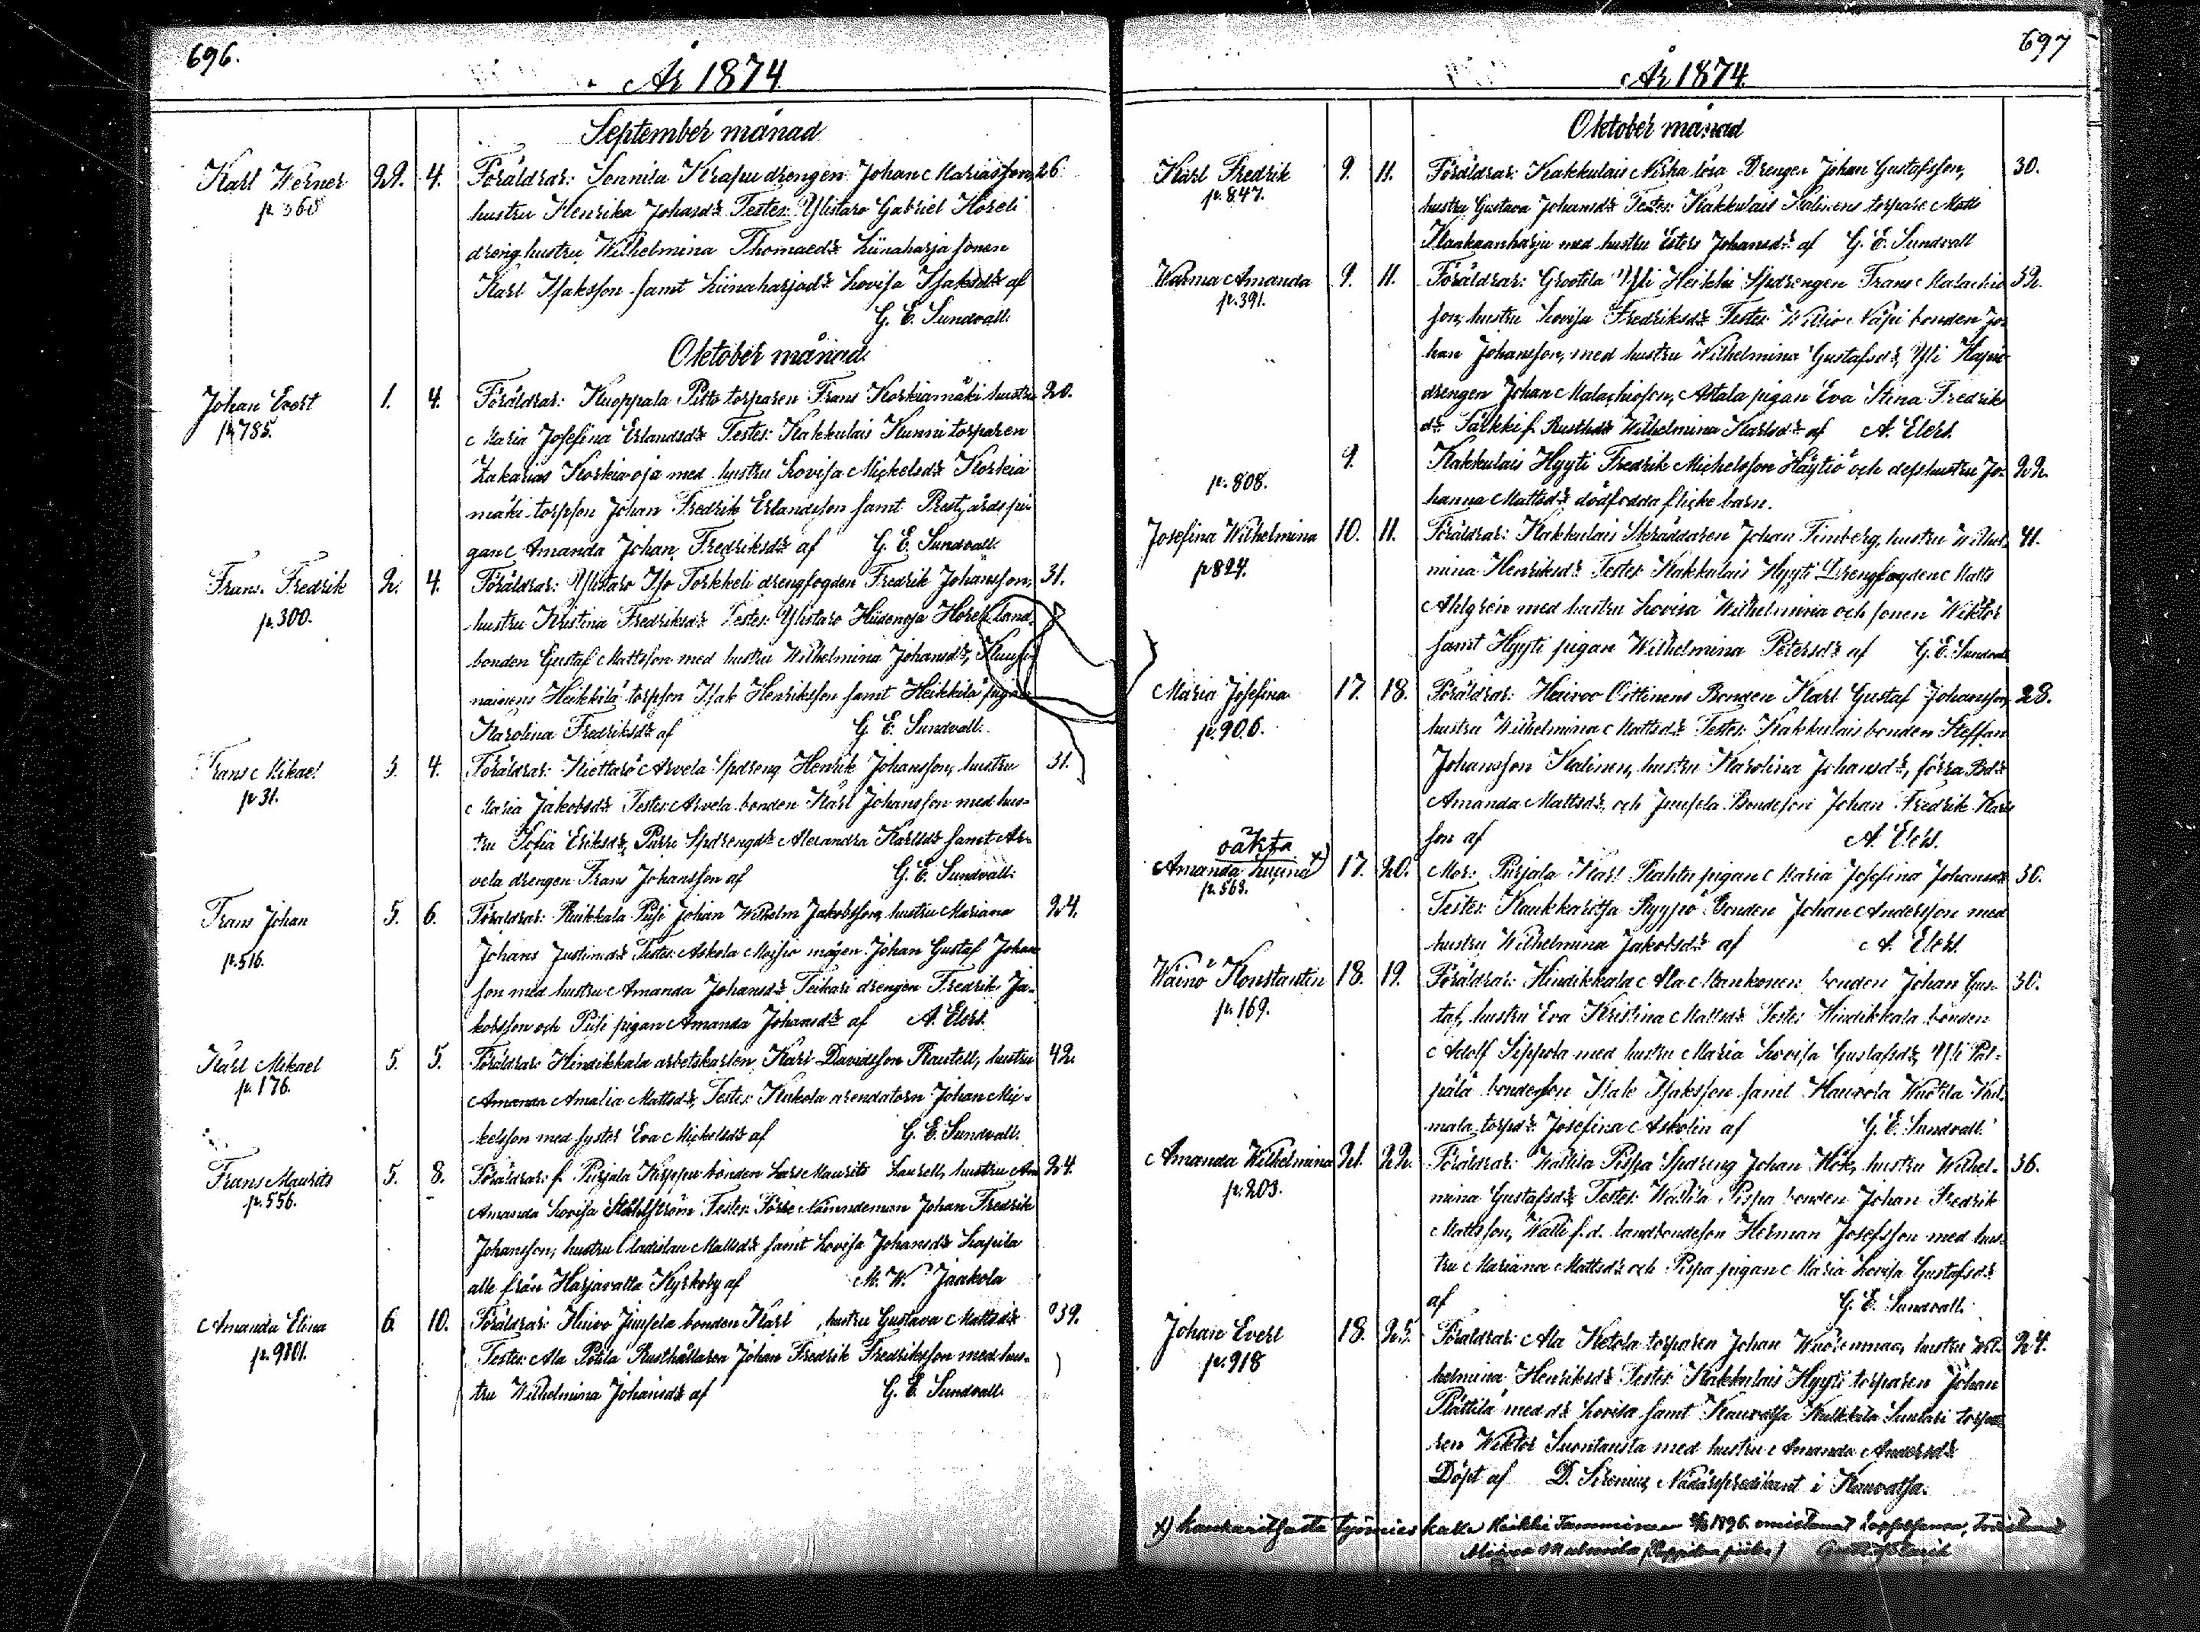 696.
År 1874
September månad
Karl Werner 29. 4. Föräldrar: Sonnila Krapu drengen Johan Mariasson, 26.
p. 360 hustru Henrika Johansdr. Testes: Ylistaro Gabriel Horeli
dreng hustru Wilhelmina Thomaedr. Liinaharja sonen
Karl Isaksson samt Liinaharjadr. Lovisa Isaksdr. af
G. E. Sundvall.
Oktober månad
Johan Evert 1. 4. Föräldrar: Kuoppala Pitto torparen Frans Korkiamäki hustru 20.
p. 785. Maria Josefina Erlandsdr. Testes: Kakkulais Kunni torparen
Zakarias Korkiaoja med hustru Lovisa Mickelsdr. Korkia
mäki torpson Johan Fredrik Erlandsson samt Prestgårds pi-
gan Amanda Johan Fredriksdr. af G. E. Sundvall.
Frans Fredrik 2. 4. Föräldrar: Ylistaro Iso Torkkeli drengfogden Fredrik Johansson, 31.
p. 300. hustru Kristina Fredriksdr. Testes: Ylistaro Hiidenoja Horeli land-
bonden Gustaf Mattsson med hustru Wilhelmina Johansdr.,
Heikkilä torpson Isak Henriksson samt Heikkilä pigan
Karolina Fredriksdr. af G. E. Sundvall.
Frans Mikael 3. 4. Föräldrar: Kiettarö Arvela Spdreng Henrik Johansson, hustru 31.
p. 31. Maria Jakobsdr. Testes: Arvela bonden Karl Johansson med hus-
tru Sofia Eriksdr., Purri Spdrengdr. Alexandra Karlsdr. samt Ar-
vela drengen Frans Johansson af G. E. Sundvall.
Frans Johan 5. 6. Föräldrar: Ruikkala Pusi Johan Wilhelm Jakobsson, hustru Mariana 24.
p. 516. Johans Justinadr. Testes: Askola Moisio mågen Johan Gustaf Johans
son med hustru Amanda Johansdr. Teikari drengen Fredrik Ja-
kobsson och Pusi pigan Amanda Johansdr. af A. Elers.
Karl Mikael 5. 5. Föräldrar: Hindikkala arbetskarlen Karl Davidsson Rautell, hustru 42.
p. 176. Amanda Amalia Mattsdr., Testes: Kukola arendatorn Johan Mic-
kelsson med syster Eva Mickelsdr. af G. E. Sundvall.
Frans Maurits 5. 8. Föräldrar: f. Purjala Kirppu bonden Lars Maurits Laurell, hustru 24.
p. 556. Amanda Lovisa Stählström Testes: Förre Nämndeman Johan Fredrik
Johansson, hustru Ladislau Mattsdr. samt Lovisa Johansdr. Lapila
alle från Harjavalta Kyrkoby af M. W. Jaakola
Amanda Elina 6. 10. Föräldrar: Kuivo Juusela bonden Karl , hustru Gustava Mattsdr. 39.
p. 9801. Testes: Ala Potila Rusthållaren Johan Fredrik Fredriksson med hus-
tru Wilhelmina Johansdr. af G. E. Sundvall.
697
År 1874
Oktober månad
Karl Fredrik 9. 11. Föräldrar: Kakkulais Nirka Drengen Johan Gustafsson, 30.
p. 847. hustru Gustava Johansdr. Testes: Kakkulais Kalinens torpare Matts
Klaakaanharju med hustru Esters Johansdr. af G. E. Sundvall
Amanda 9. 11. Föräldrar: Grootila Yli Heikki Spdrengen Frans Malachias 32.
p. 391. son, hustru Lovisa Fredriksdr. Testes: Näpi bonden Jo-
han Johansson, med hustru Wilhelmina Gustafsdr., Yli
drengen Johan Malachiasson, Attala pigan Eva Stina Fredriks
dr. Wilhelmina Karlsdr. af A. Elers.
9. Kakkulais Hyyti Fredrik Michelsson Häytiö och dess hustru Jo- 22.
p. 808. hanna Mattsdr. dödfödda flicke barn.
Josefina Wilhelmina 10. 11. Föräldrar: Kakkulais Skräddaren Johan Timberg, hustru Wilhel- 41.
p 824. mina Henriksdr. Testes: Kakkulais Hyyti Drengfogden Matts
Ahlgren med hustru Lovisa Wilhelmina och sonen Wiktor
samt Hyyti pigan Wilhelmina Petersdr. af G. E. Sundvall
Maria Josefina 17. 18. Föräldrar: Oittinens Bonden Karl Gustaf Johansson, 28.
p. 906. hustru Wilhelmina Mattsdr. Testes: Kakkulais bonden Steffan
Johansson Kalinen, hustru Karolina Johansdr., förra Bdr.
Amanda Mattsdr. och Juusela Bondeson Johan Fredrik Karls
son af A. Elers.
oäkta
Amanda Lucina x) 17. 20. Mor: Purjala Karl Rahta pigan Maria Josefina Johansdr. 30.
p. 563. Testes: Kaukkaritsa Ryypö Bonden Johan Andersson med
hustru Wilhelmina Jakobsdr. af A. Elers.
Wäinö Konstantin 18. 19. Föräldrar: Hindikkala Ala Mankonen bonden Johan Gus- 30.
p. 169. taf, hustru Eva Kristina Mattsdr. Testes: Hindikkala bonden
Adolf Sippola med hustru Maria Lovisa Gustafsdr., Yli Pal-
pala bondeson Isak Isaksson samt Haurola
torpdr. Josefina Askolin af G. E. Sundvall.
Amanda Wilhelmina 21. 22. Föräldrar: Wallila Pispa Spdreng Johan Hök, hustru Wilhel- 36.
p. 203. mina Gustafsdr., Testes: Wallila Pispa bonden Johan Fredrik
Mattsson, f.d. landbondeson Herman Josefsson med hus-
tru Mariana Mattsdr. och Pispa pigan Maria Lovisa Gustafsdr.
af G. E. Sundvall.
Johan Evert 18. 25. Föräldrar: Ala Ketola torparen Johan Wuorenmaa, hustru Wil- 24.
p. 918 helmina Henriksdr. Testes: Kakkulais Hyyti torparen Johan
Rättilä med dr. Lovisa samt Kauvatsa Kulkkila Suntari torpa-
ren Wiktor Suontausta med hustru Amanda Andersdr.
Döpt af D. Sirenius, Nådårspredikant i Kauvatsa.
x) työmies Heikki Tamminen 1896